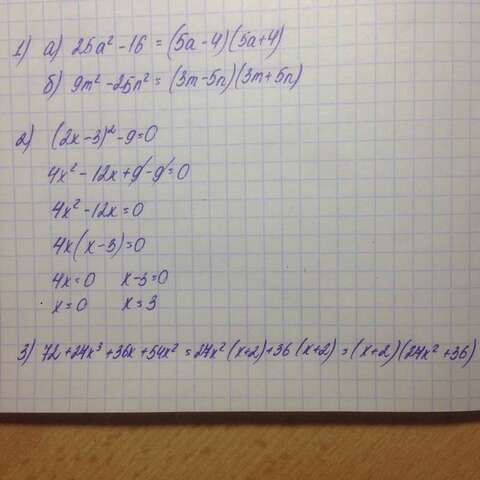 1) а) 25a² - 16 = (5a - 4)(5a + 4)
б) 9m² - 25n² = (3m - 5n)(3m + 5n)
2) (2x - 3)² - 9 = 0
4x² - 12x + 9 - 9 = 0
4x² - 12x = 0
4x(x - 3) = 0
4x = 0 x - 3 = 0
x = 0 x = 3
3) 72 + 24x³ + 36x + 54x² = 24x²(x+2) + 36(x+2) = (x+2)(24x² + 36)